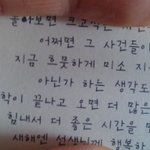 돌아보면 크고작은
어쩌면 그 사건들이
지금 흐뭇하게 미소 지
아닌가 하는 생각도
학이 끝나고 오면 더 많은
힘내서 더 좋은 시간을
새해엔 선생님께 행복한